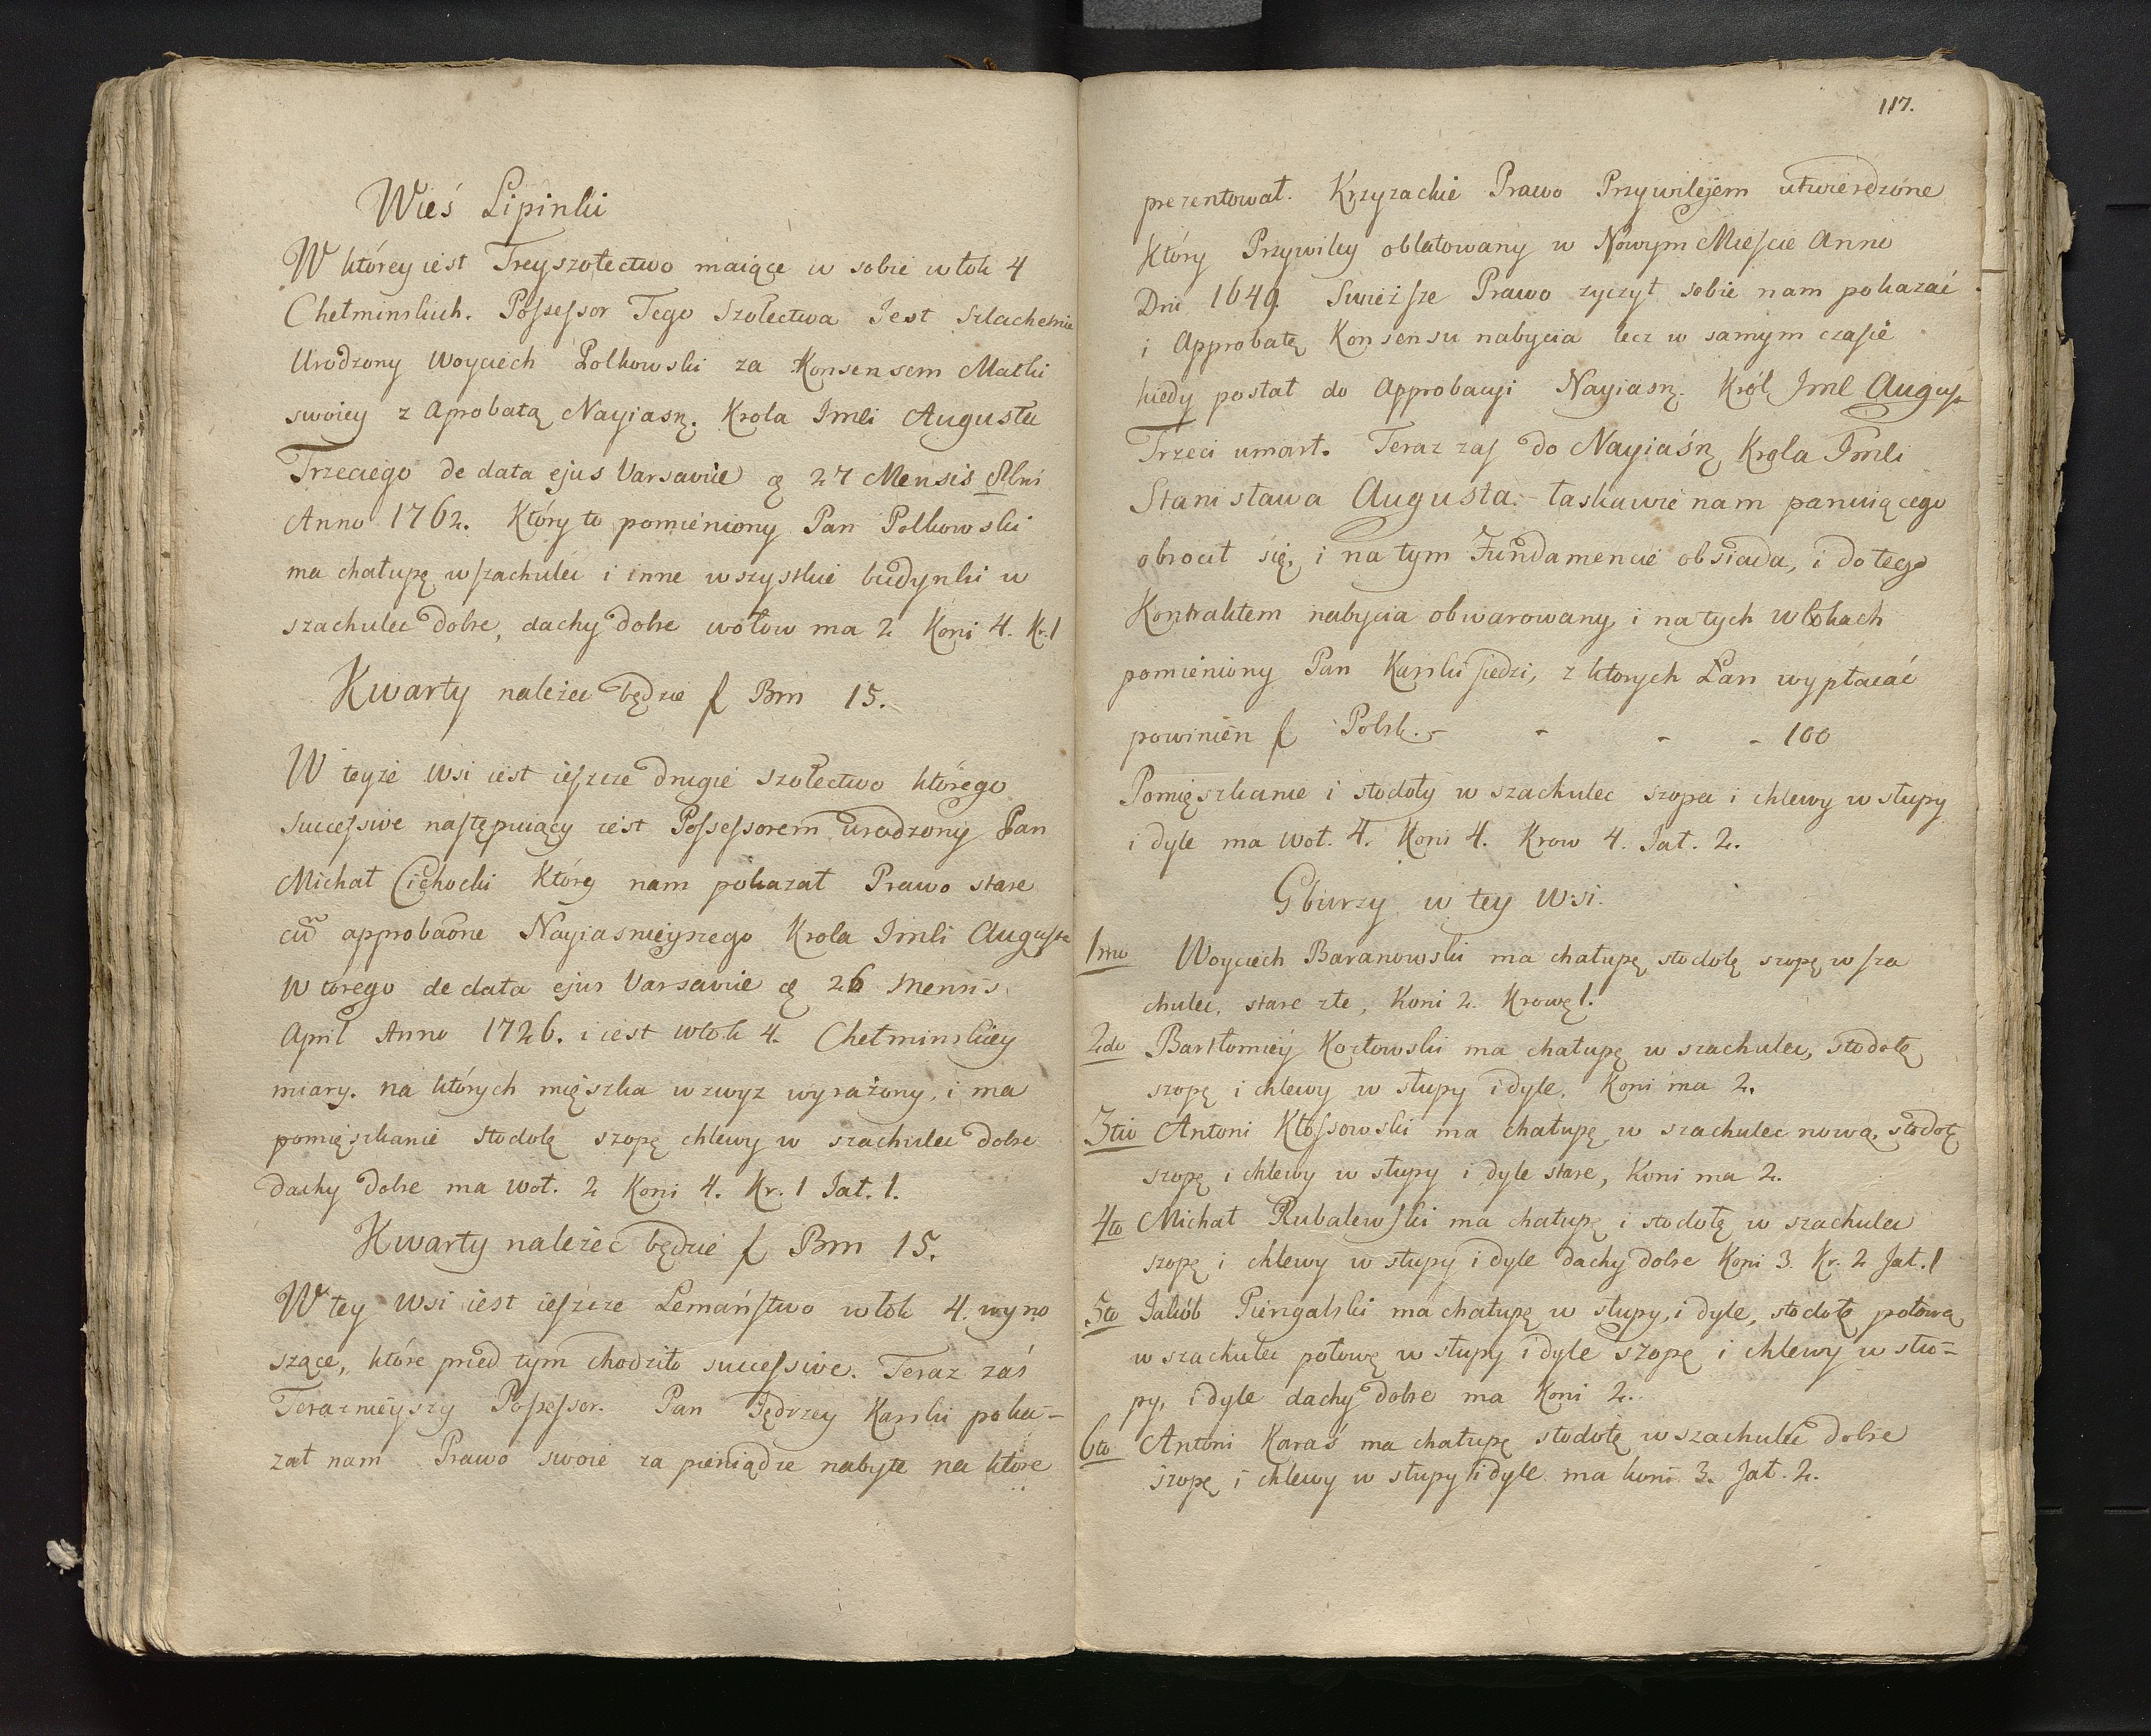 Wieś Lipinki
W którey iest Freyszołectwo maiące w sobie włok 4
Chełminskich. Possessor Tego Szołectwa Jest Szlachetnie
Urodzony Woyciech Polkowski za Konsensem Matki
swoiey z Aprobatą Nayiasn. Krola Jmci Augusta
Trzeciego de data ejus Varsavie 27 Mensis 8bris
Anno 1762. Który to pomieniony Pan Polkowski
ma chałupę w szachulec i inne wszystkie budynki w
szachulec dobre, dachy dobre wołow ma 2 Koni 4. Kr. 1
Kwarty należec będzie f Bm 15.
W teyże Wsi iest ieszcze drugie Szołectwo którego
successive następuiący iest Possessorem urodzony Pan
Michał Cichocki Który nam pokazał Prawo stare
cu approbaone Nayiasnieyszego Krola Jmci Augusta
Wtorego de data ejus Varsavie 26 Mensis
April Anno 1726. i iest włok 4. Chełminskiey
miary. na których mięszka wzwyz wyrażony, i ma
pomięszkanie stodołę szopę chlewy w szachulec dobre
dachy dobre ma woł. 2 Koni 4. Kr. 1 Jał. 1.
Kwarty należec będzie f Bm 15.
W tey Wsi iest ieszcze Lemaństwo włok 4. wyno
szące, które przed tym chodziło successive. Teraz zaś
Teraznieyszy Possessor. Pan Jędrzey Karski poka-
zał nam Prawo swoie za pieniądze nabyte na które
117.
prezentował. Krzyzackie Prawo Przywilejem utwierdzone
Który Przywiley oblatowany w Nowym Miescie Anno
Dni 1649 Swieższe Prawo zyczył sobie nam pokazać
i Approbatę Konsensu nabycia lecz w samym czasie
kiedy posłał do Approbacyi Nayiasn. Król Jmc August
Trzeci umarł. Teraz zas do Nayiaśn Krola Jmci
Stanisława Augusta. łaskawie nam panuiącego
obrocił się, i na tym Fundamencie obsiada, i do tego
Kontraktem nabycia obwarowany i na tych Włokach
pomieniony Pan Karski siedzi, z ktorych Łan wypłacać
powinien f Polsk. - - - - 100
Pomięszkanie i stodoły w szachulec szopa i chlewy w słupy
i dyle ma Woł. 4. Koni 4. Krow 4. Jał. 2.
Gburzy w tey Wsi.
1mo Woyciech Baranowski ma chałupę stodołę szopę w sza
chulec, stare złe, Koni 2. Krowę 1.
2do Bartłomiey Kozłowski ma chałupę w szachulec, stodołę
szopę i chlewy w słupy i dyle, Koni ma 2.
3tio Antoni Kłossowski ma chałupę w szachulec nową, stodołę
szopę i chlewy w słupy i dyle stare, Koni ma 2.
4to Michał Rubalewski ma chałupę i stodołę w szachulec
szopę i chlewy w słupy i dyle dachy dobre Koni 3. Kr. 2 Jał. 1
5to Jakób Piengalski ma chałupę w słupy, i dyle, stodołę połową
w szachulec połowę w słupy i dyle szopę i chlewy w słu-
py, i dyle dachy dobre ma Koni 2.
6to Antoni Karaś ma chałupę stodołę w szachulec dobre
szopę i chlewy w słupy i dyle ma koni 3. Jał. 2.